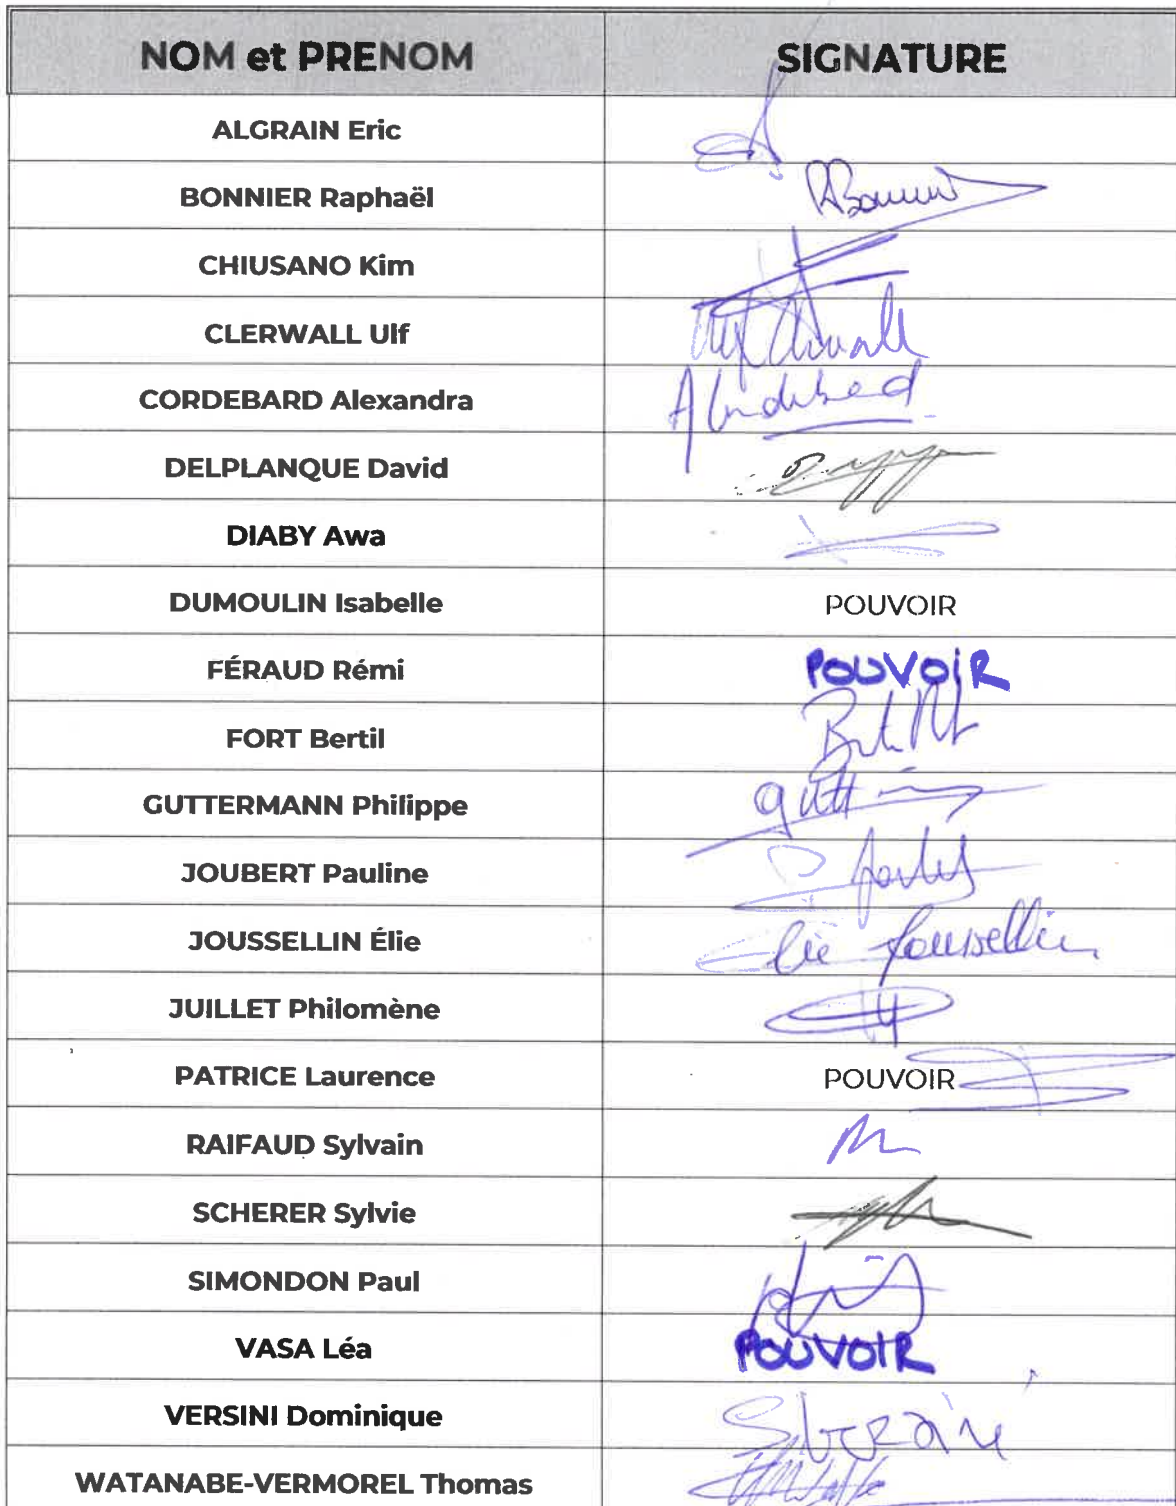 NOM et PRENOM SIGNATURE
ALGRAIN Eric
BONNIER Raphaël RBonnier
CHIUSANO Kim
CLERWALL Ulf
CORDEBARD Alexandra
DELPLANQUE David
DIABY Awa
DUMOULIN Isabelle POUVOIR
FÉRAUD Rémi POUVOIR
FORT Bertil
GUTTERMANN Philippe
JOUBERT Pauline
JOUSSELLIN Élie Elie Jousselin
JUILLET Philomène
PATRICE Laurence POUVOIR
RAIFAUD Sylvain
SCHERER Sylvie
SIMONDON Paul
VASA Léa POUVOIR
VERSINI Dominique
WATANABE-VERMOREL Thomas